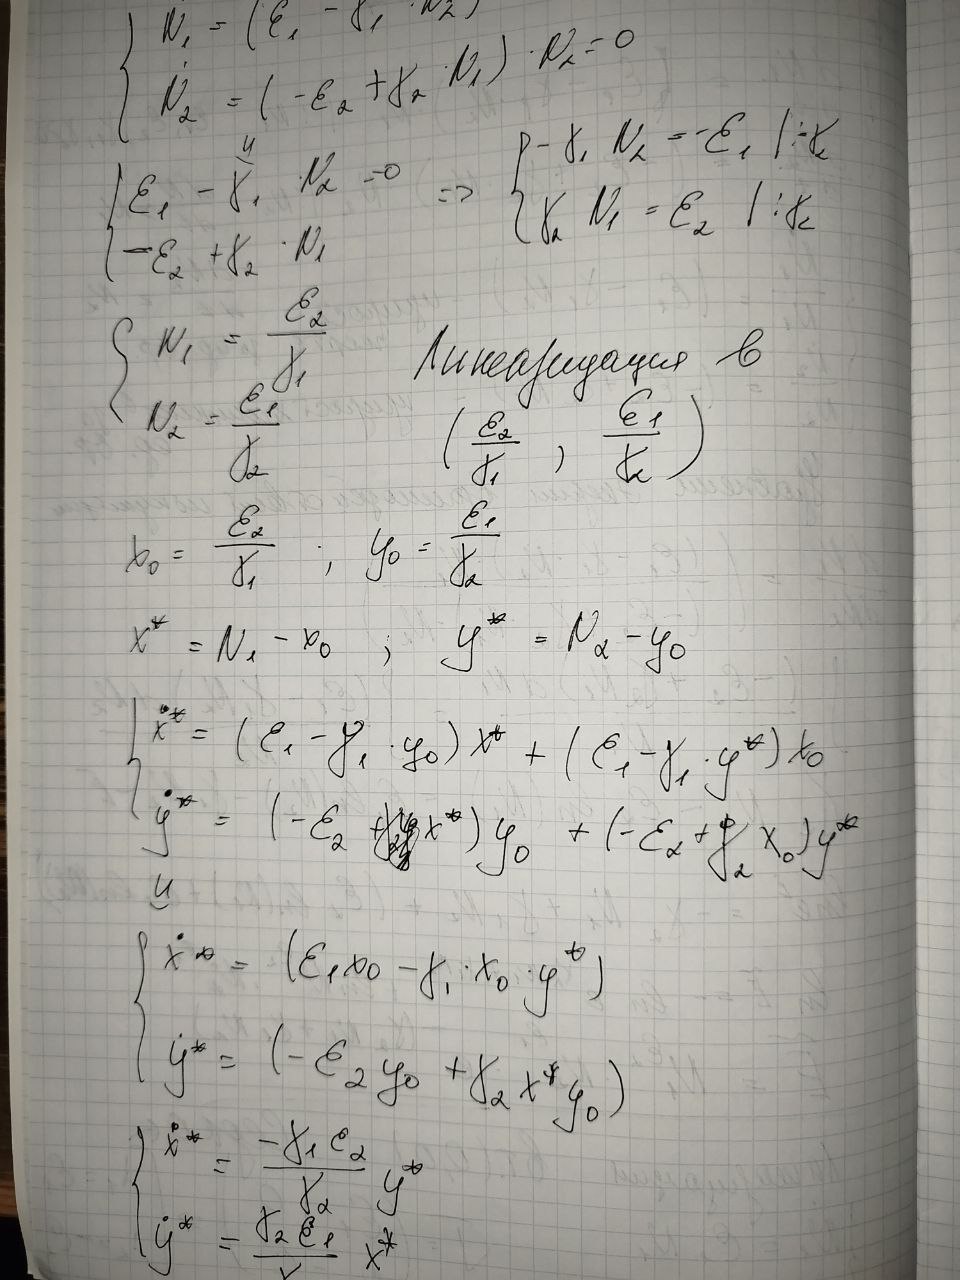 Ṅ₁ = (ε₁ - γ₁ · N₂)
Ṅ₂ = (-ε₂ + γ₂ · N₁) · N₂ = 0
ε₁ - γ₁ · N₂ = 0 => - γ₁ N₂ = -ε₁ | : -γ₂
-ε₂ + γ₂ · N₁ γ₂ N₁ = ε₂ | : γ₂
N₁ = ε₂/γ₁ Линеаризация в
N₂ = ε₁/γ₂ (ε₂/γ₁ , ε₁/γ₂)
x₀ = ε₂/γ₁ ; y₀ = ε₁/γ₂
x* = N₁ - x₀ ; y* = N₂ - y₀
ẋ* = (ε₁ - γ₁ · y₀) x* + (ε₁ - γ₁ · y*) x₀
ẏ* = (-ε₂ + x*) y₀ + (-ε₂ + γ₂ x₀) y*
ẋ* = (ε₁x₀ - γ₁ · x₀ · y*)
ẏ* = (-ε₂ y₀ + γ₂ x* y₀)
ẋ* = -γ₁ ε₂/γ₂ y*
ẏ* = γ₂ ε₁/γ x*